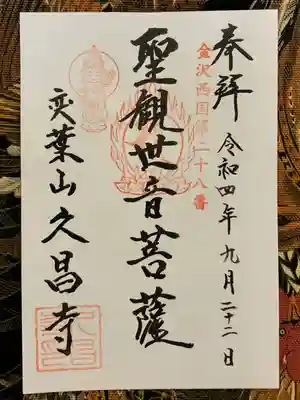 奉拜
令和四年九月二十二日
金沢西国第二十八番
聖観世音菩薩
久昌寺